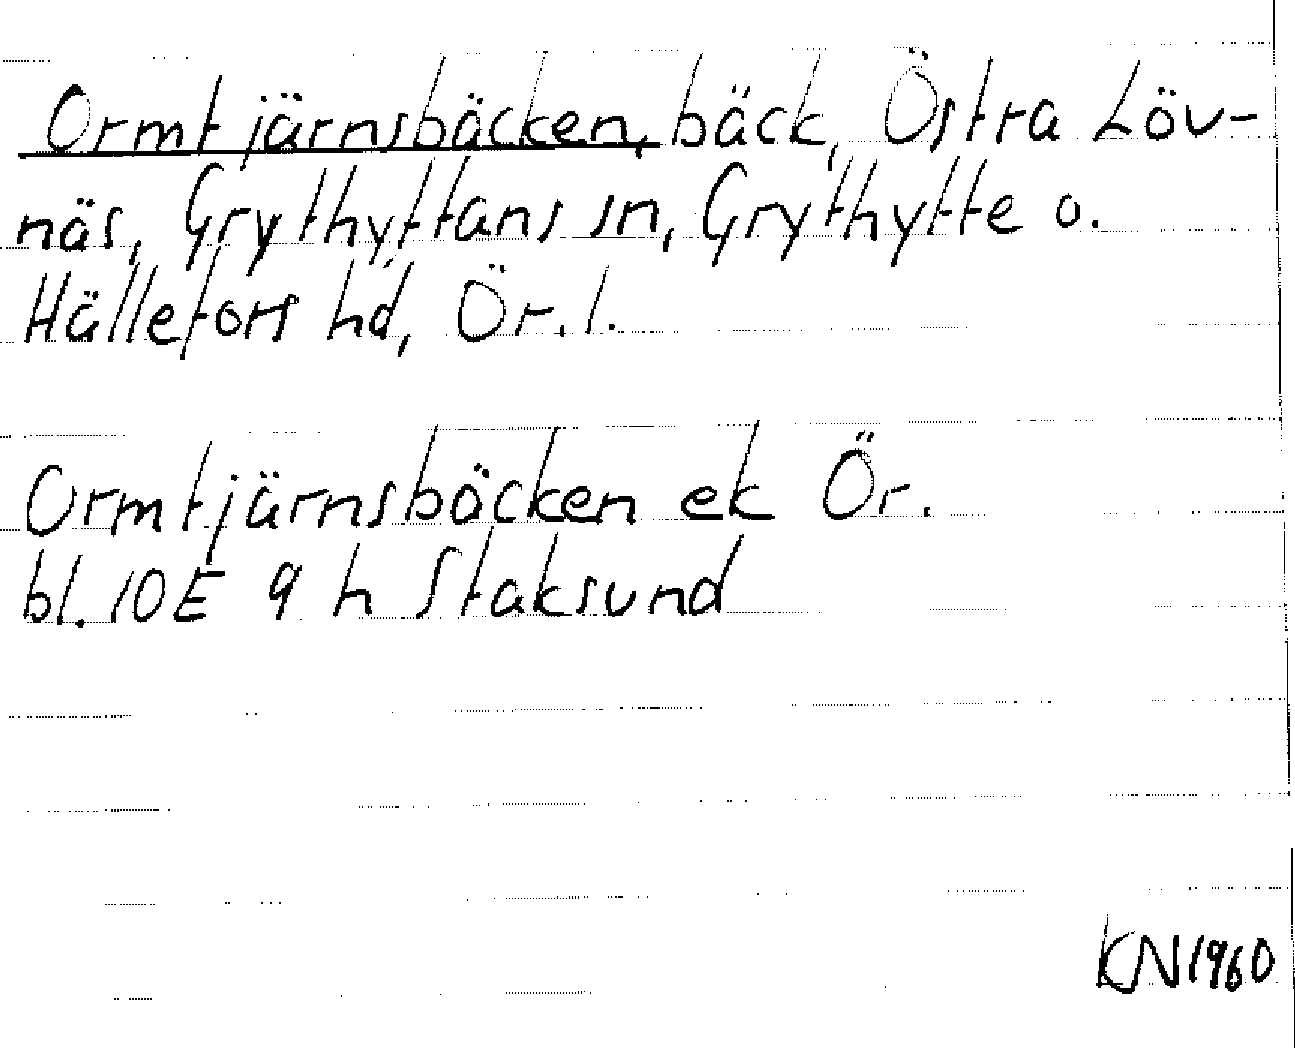 Ormtjärnsbäcken, bäck, Östra Löv-
näs, Grythyttans sn, Grythytte o.
Hällefors hd, Ör. l.
Ormtjärnsbäcken ek Ör.
bl. 10E 9 h Staksund
KN1960